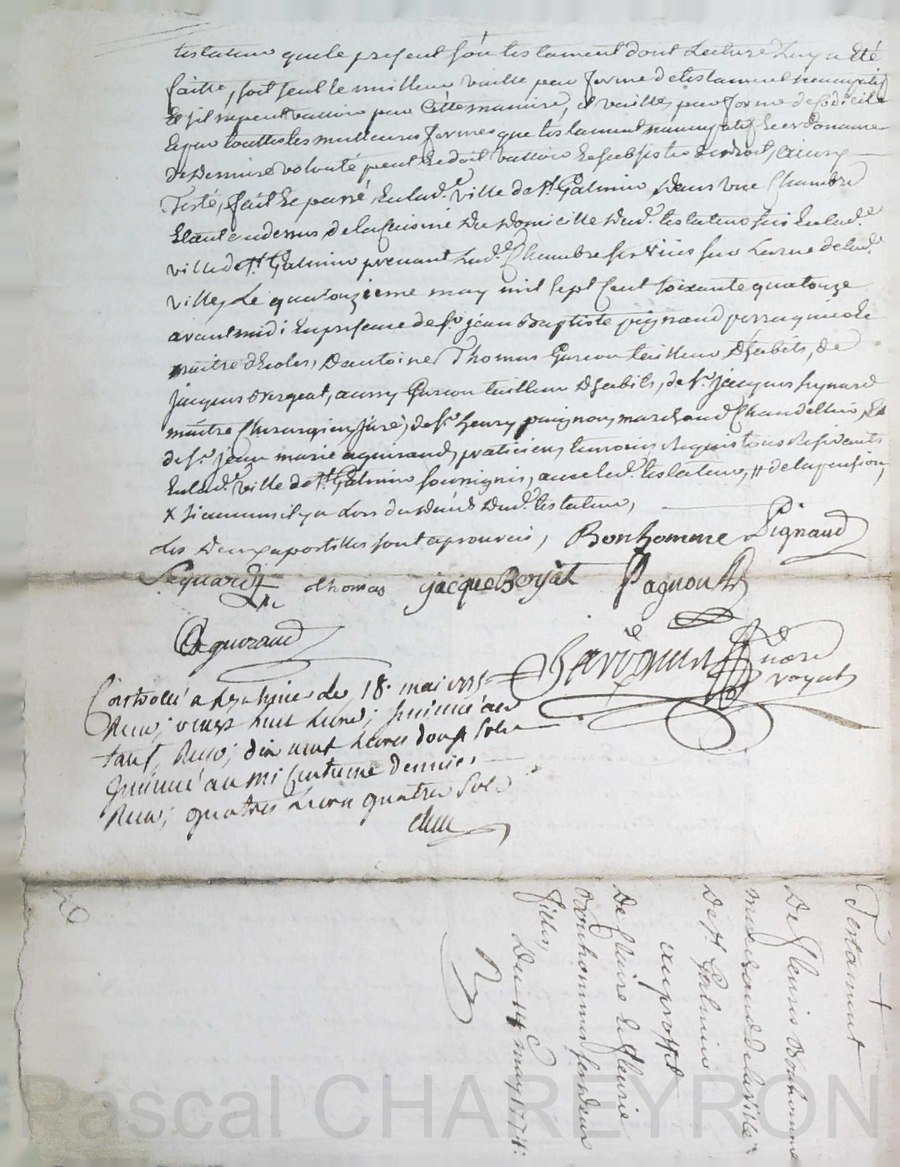 testateur que le present son testament dont Lecture Luy a été
faitte, soit seul le meilleur vaille par forme de testament nuncupatif
Et s'il ne peut valloir par cette maniere, il vaille par forme de Codicile
Et par touttes les meilleures formes que testament nuncupatif Et ordonnance
de Derniere volonté peut Et doit valloir Et subsister de droit, ainsy
Testé, fait Et passé, En lad.e ville de St. Galmier Dans une Chambre
Etant au dessus de la Cuisine Du Domicille Dud. testateur sis En lad.e
ville de St. Galmier prenant Lad.e Chambre ses vües sur La rue de lad.e
ville, Le quatorzieme may mil sept Cent soixante quatorze
avant midi En presence de Sr. jean Baptiste pignaud perruquier Et
maitre d'Ecoles, D'antoine Thomas Garcon tailleur D'habits, de
jacques Bergeat, aussy Garcon tailleur D'habits, de Sr. jacques
maitre Chirurgien juré, de Sr. henry marchand Chandellier, Et
de Sr. jean marie aguiraud, praticien, temoins Requis tous Residents
En lad.e ville de St. Galmier soussignés, avec led. testateur, # de la pension,
X si aucuns il y a Lors du Déces Dud. testateur,
Les Deux apostilles sont aprouvées, Bonhomme Pignaud
Thomas jacque Berjat Pagnon
Aguiraud
no.re royal
Controllé a le 18. mai 1774
Recu; vingt huit livres; insinué au
tarif, Recu; dix neuf livres douze sols
insinué au mi Centieme denier
Recu; quatre livres quatre sols
Testament
De fleurie Bonhomme
marchand de la ville
De St. Galmier
au proffit
De Claire Et fleurie
Bonhomme ses deux
filles,
Du 14 may 1774.
Pascal CHAREYRON